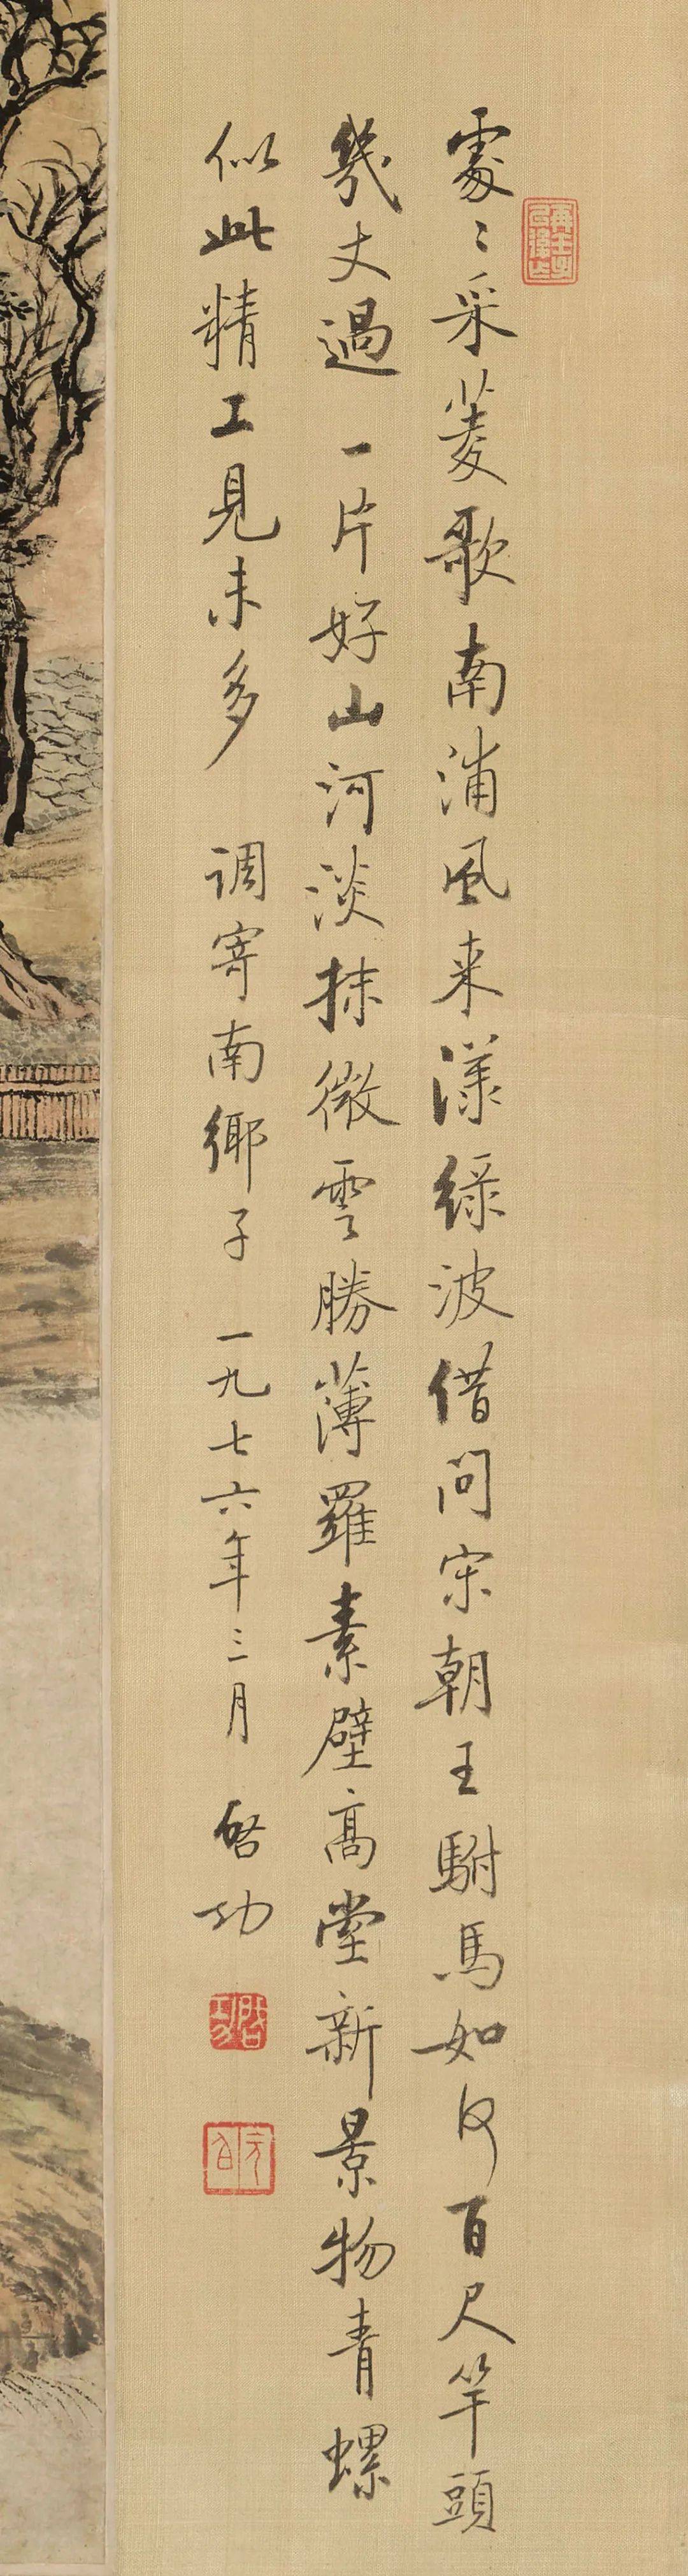 處〻采菱歌南浦風来漾綠波借問宋朝王駙馬如何百尺竿頭
幾丈過一片好山河淡抹微雲勝薄羅素壁高堂新景物青螺
似此精工見未多　调寄南鄉子　一九七六年三月　啓功
啟功
元白